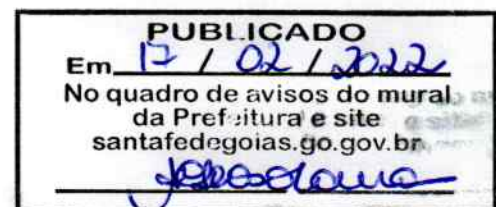 PUBLICADO
Em 17 / 02 / 2022
No quadro de avisos do mural
da Prefeitura e site
santafedegoias.go.gov.br